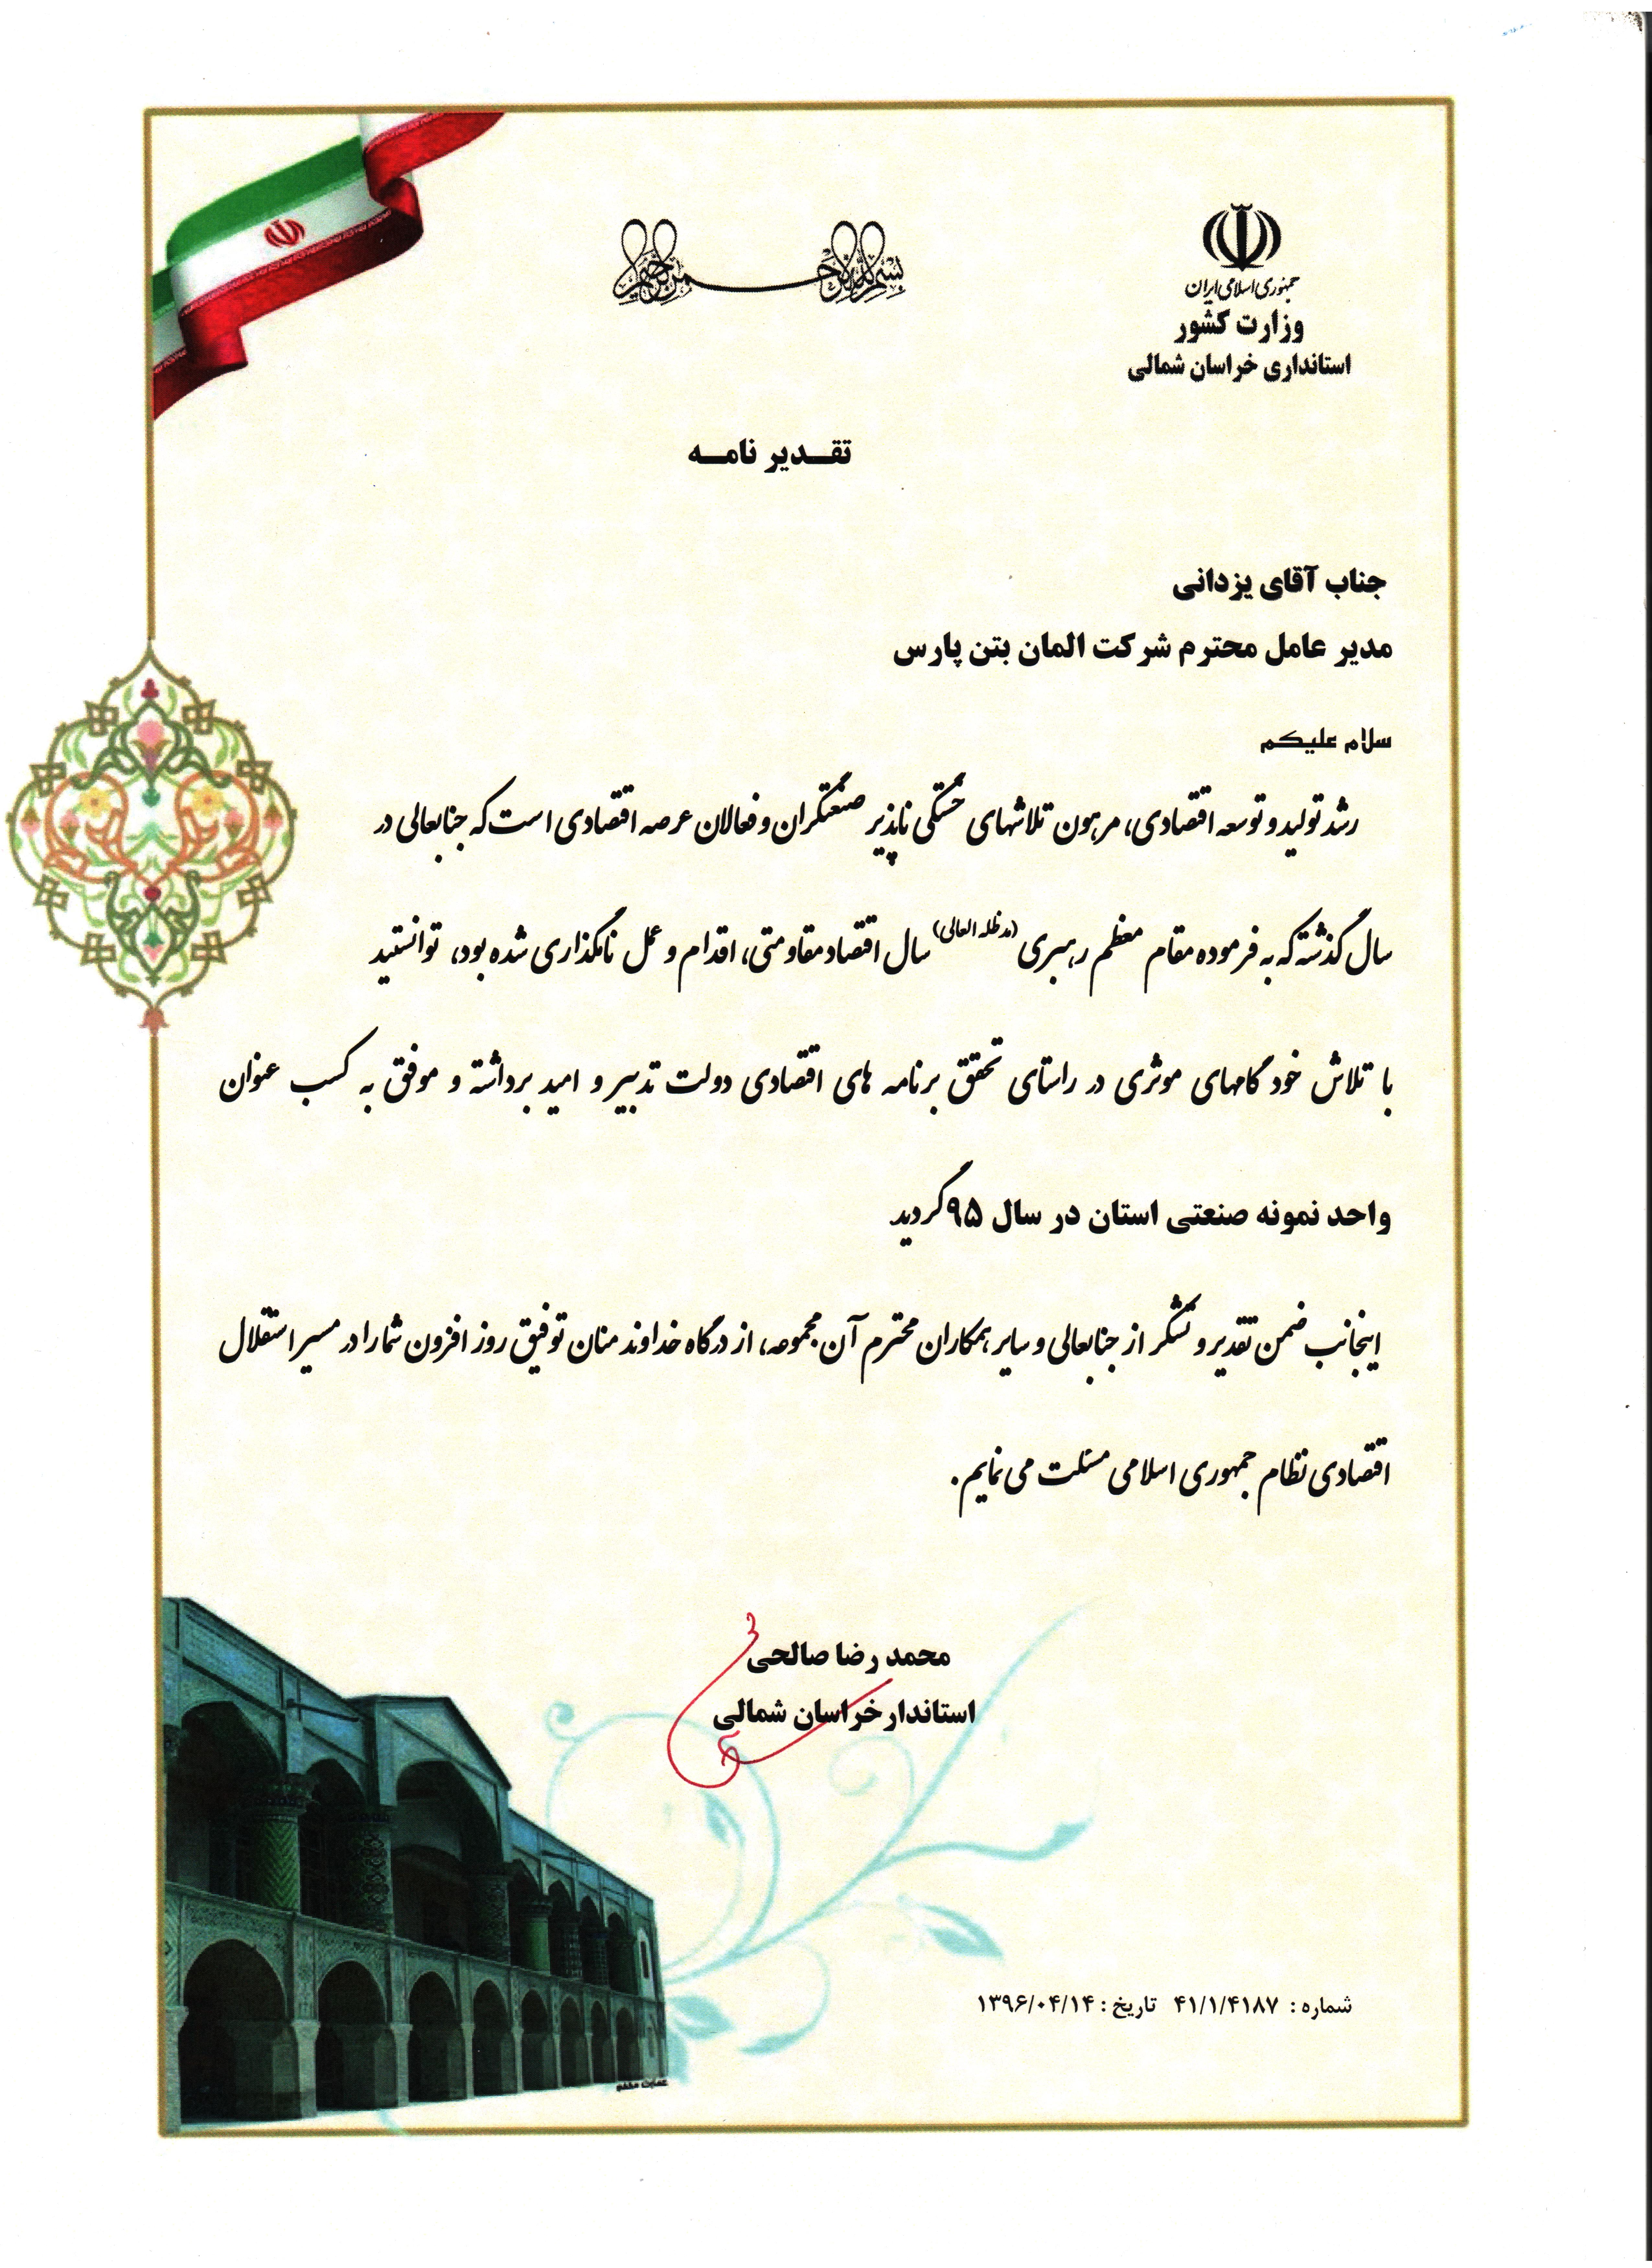 بسم الله الرحمن الرحیم
جمهوری اسلامی ایران
وزارت کشور
استانداری خراسان شمالی
تقدیر نامه
جناب آقای یزدانی
مدیر عامل محترم شرکت المان بتن پارس
سلام علیکم
رشد تولید و توسعه اقتصادی، مرهون تلاشهای خستگی ناپذیر صنعتگران و فعالان عرصه اقتصادی است که جنابعالی در
سال گذشته که به فرموده مقام معظم رهبری (مدظله العالی) سال اقتصاد مقاومتی، اقدام و عمل نامگذاری شده بود، توانستید
با تلاش خود گامهای موثری در راستای تحقق برنامه های اقتصادی دولت تدبیر و امید برداشته و موفق به کسب عنوان
واحد نمونه صنعتی استان در سال ۹۵ گردید
اینجانب ضمن تقدیر و تشکر از جنابعالی و سایر همکاران محترم آن مجموعه، از درگاه خداوند منان توفیق روز افزون شما را در مسیر استقلال
اقتصادی نظام جمهوری اسلامی مسئلت می نمایم.
محمد رضا صالحی
استاندار خراسان شمالی
شماره : ۴۱/۱/۴۱۸۷ تاریخ : ۱۳۹۶/۰۴/۱۴